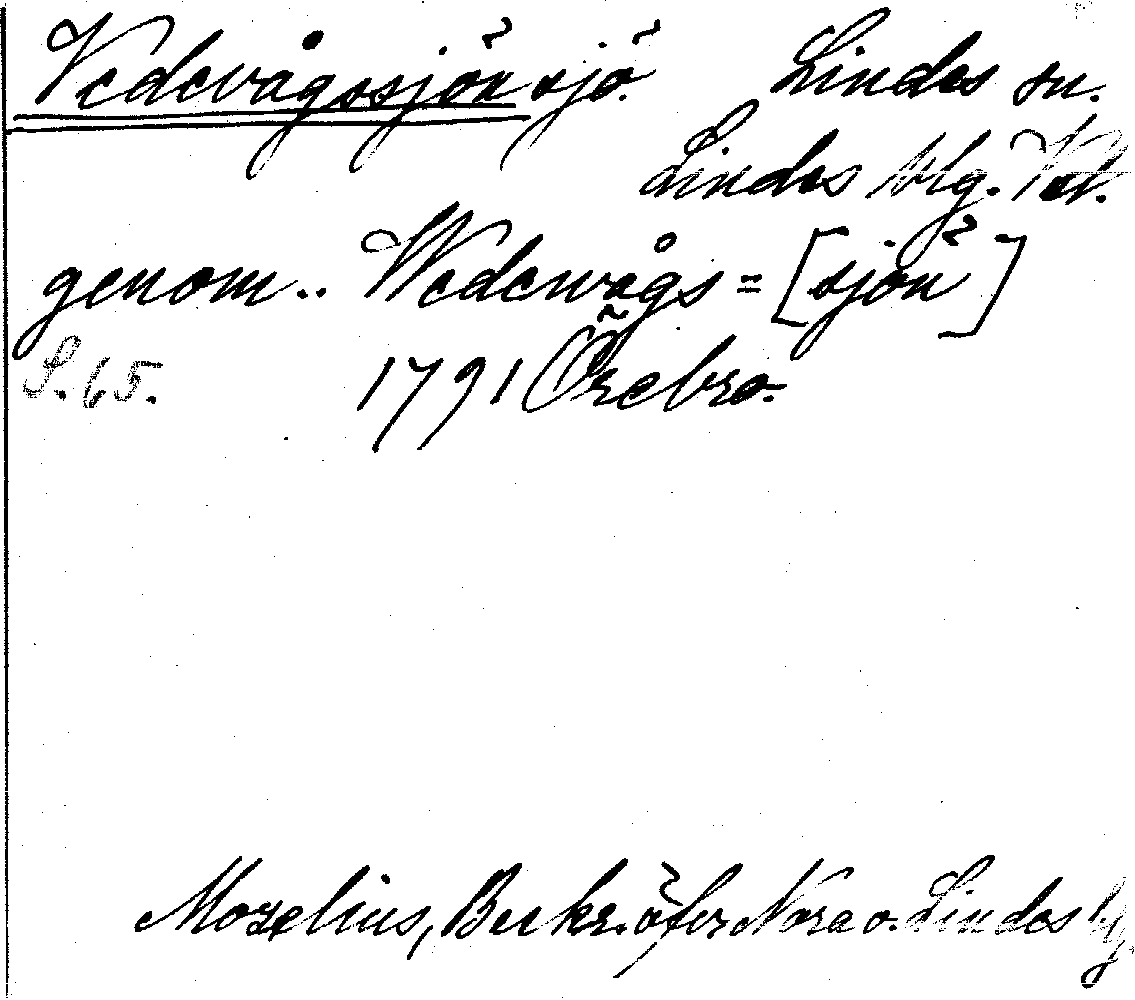 Vedevågssjön sjö. Lindes sn.
Lindes blg. Vstl.
genom .. Wedewågs = [sjön]
S. 65. 1791 Örebro.
Mozelius, Beskr. öfver Nora o. Lindes